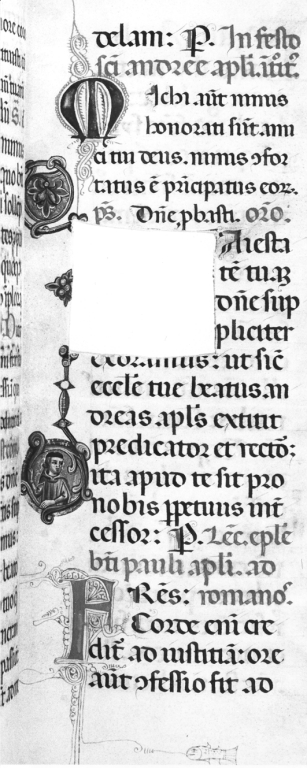 delam: P. In festo
sci andree apli. itit.
Michi aut nimis
honorati sunt ami
ci tui deus. nimis ɔfor
tatus e pricipatus eor.
ps. Dne pbasti. oro.
Maiesta
te tuaz
dne sup
pliciter
exoramus: ut sic
eccle tue beatus an
dreas apls extitit
predicator et recto:
ita apud te sit pro
nobis ppetuus int
cessor: P. Lec. eple
bti pauli apli. ad
Res: romanos.
Corde eni cre
dit ad iustitia: ore
aut ɔfessio fit ad